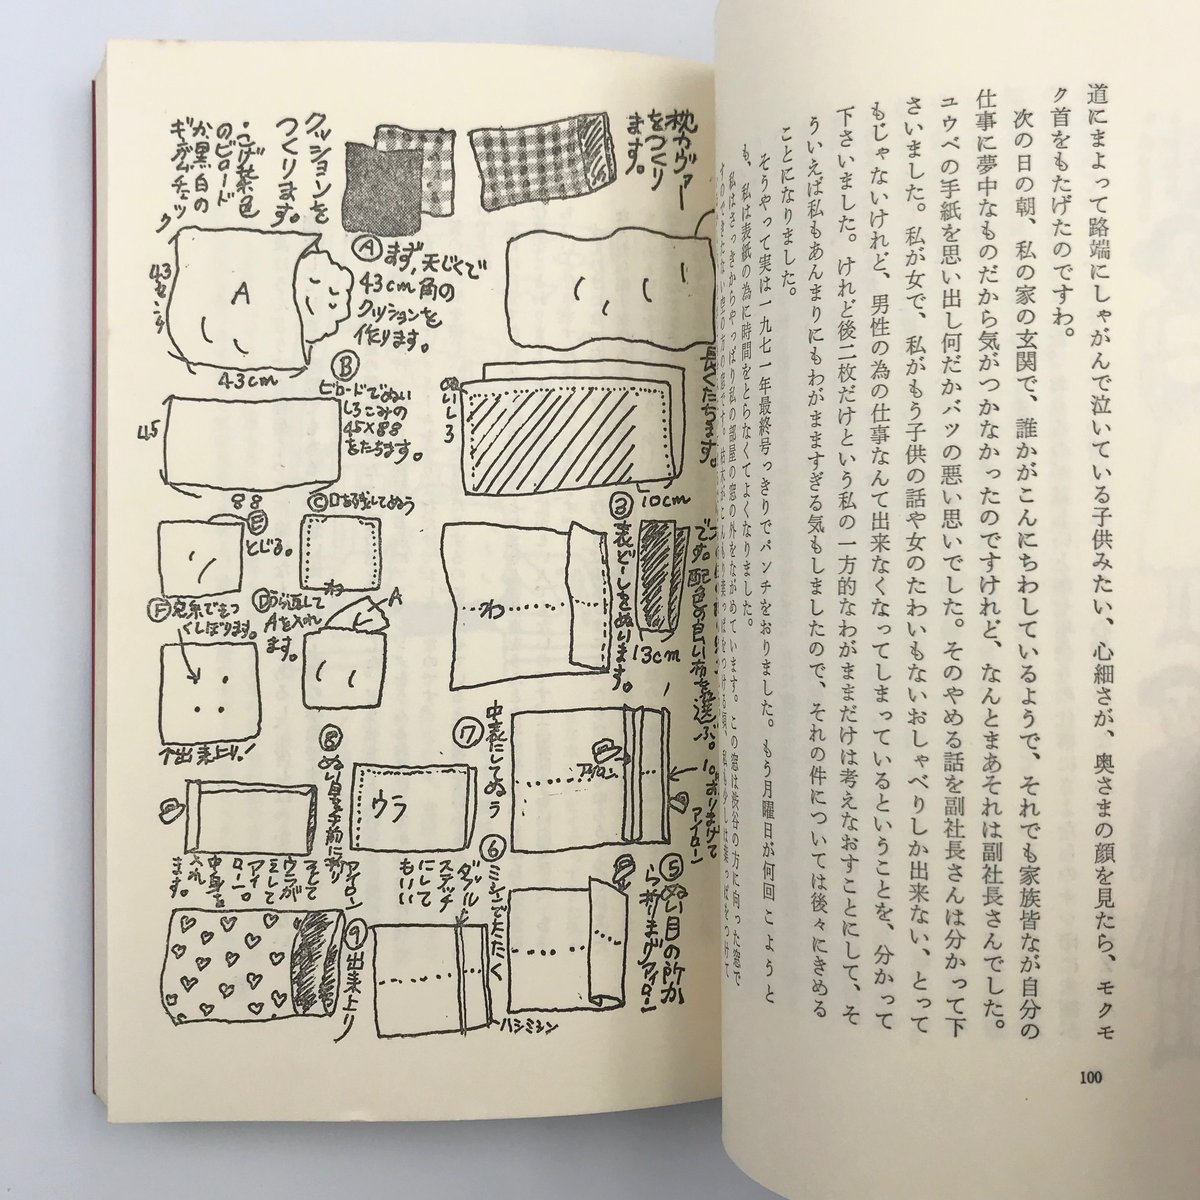 道にまよって路端にしゃがんで泣いている子供みたい、心細さが、奥さまの顔を見たら、モクモ
ク首をもたげたのですわ。
次の日の朝、私の家の玄関で、誰かがこんにちわしているようで、それでも家族皆なが自分の
仕事に夢中なものだから気がつかなかったのですけれど、なんとまあそれは副社長さんでした。
ユウベの手紙を思い出し何だかバツの悪い思いでした。そのやめる話を副社長さんは分かって下
さいました。私が女で、私がもう子供の話や女のたわいもないおしゃべりしか出来ない、とって
もじゃないけれど、男性の為の仕事なんて出来なくなってしまっているということを、分かって
下さいました。けれど後二枚だけという私の一方的なわがままだけは考えなおすことにして、そ
ういえば私もあんまりにもわがまますぎる気もしましたので、それの件については後々にきめる
ことになりました。
そうやって実は一九七一年最終号っきりでパンチをおりました。もう月曜日が何回こようと
も、私は表紙の為に時間をとらなくてよくなりました。
私はさっきからやっぱり私の部屋の窓の外をながめています。この窓は渋谷の方に向った窓で
100
枕カヴァー
をつくり
ます。
長くたちます。
ぬいしろ
10cm
13cm
です。配色の良い布を選ぶ。
③表どーしをぬいます。
わ
1cm折りまげて
アイロン
アイロン
⑤ぬい目の所か
ら折りまげアイロン
⑥ミシンでたたく
ダブル
ステッチ
にして
もいい
ハシミシン
⑦中表にしてぬう
ウラ
⑧ぬい目を手前に折り
アイロン
そして
ウラが
えして
アイ
ロン。
中身を
入れ
ます。
⑨出来上り
クッションを
つくります。
・こげ茶色
のビロード
か、黒白の
ギンガムチェック
Ⓐまず、天じくで
43cm角の
クッションを
作ります。
43センチ
A
43cm
Ⓑ
ビロードでぬい
しろこみの
45×88
をたちます。
45
88
Ⓒ口を残してぬう
わ
Ⓓうら返して
Aを入れ
ます。
A
Ⓔ
とじる。
Ⓕ
くしぼります。
↑出来上り!